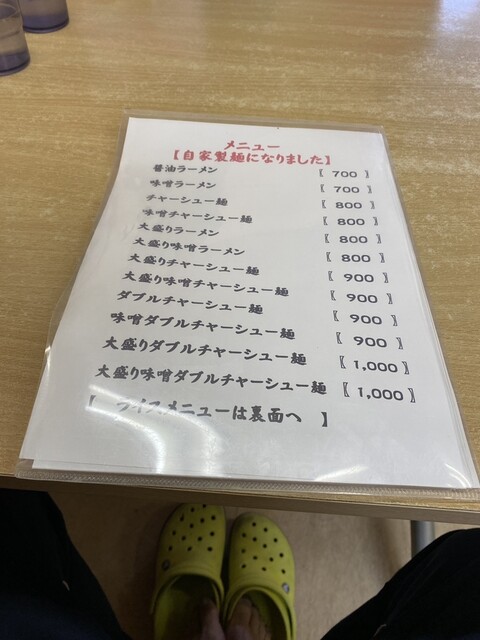 メニュー
【自家製麺になりました】
醤油ラーメン 〖 700 〗
味噌ラーメン 〖 700 〗
チャーシュー麺 〖 800 〗
味噌チャーシュー麺 〖 800 〗
大盛りラーメン 〖 800 〗
大盛り味噌ラーメン 〖 800 〗
大盛りチャーシュー麺 〖 900 〗
大盛り味噌チャーシュー麺 〖 900 〗
ダブルチャーシュー麺 〖 900 〗
味噌ダブルチャーシュー麺 〖 900 〗
大盛りダブルチャーシュー麺 〖 1,000 〗
大盛り味噌ダブルチャーシュー麺 〖 1,000 〗
【 ライスメニューは裏面へ 】